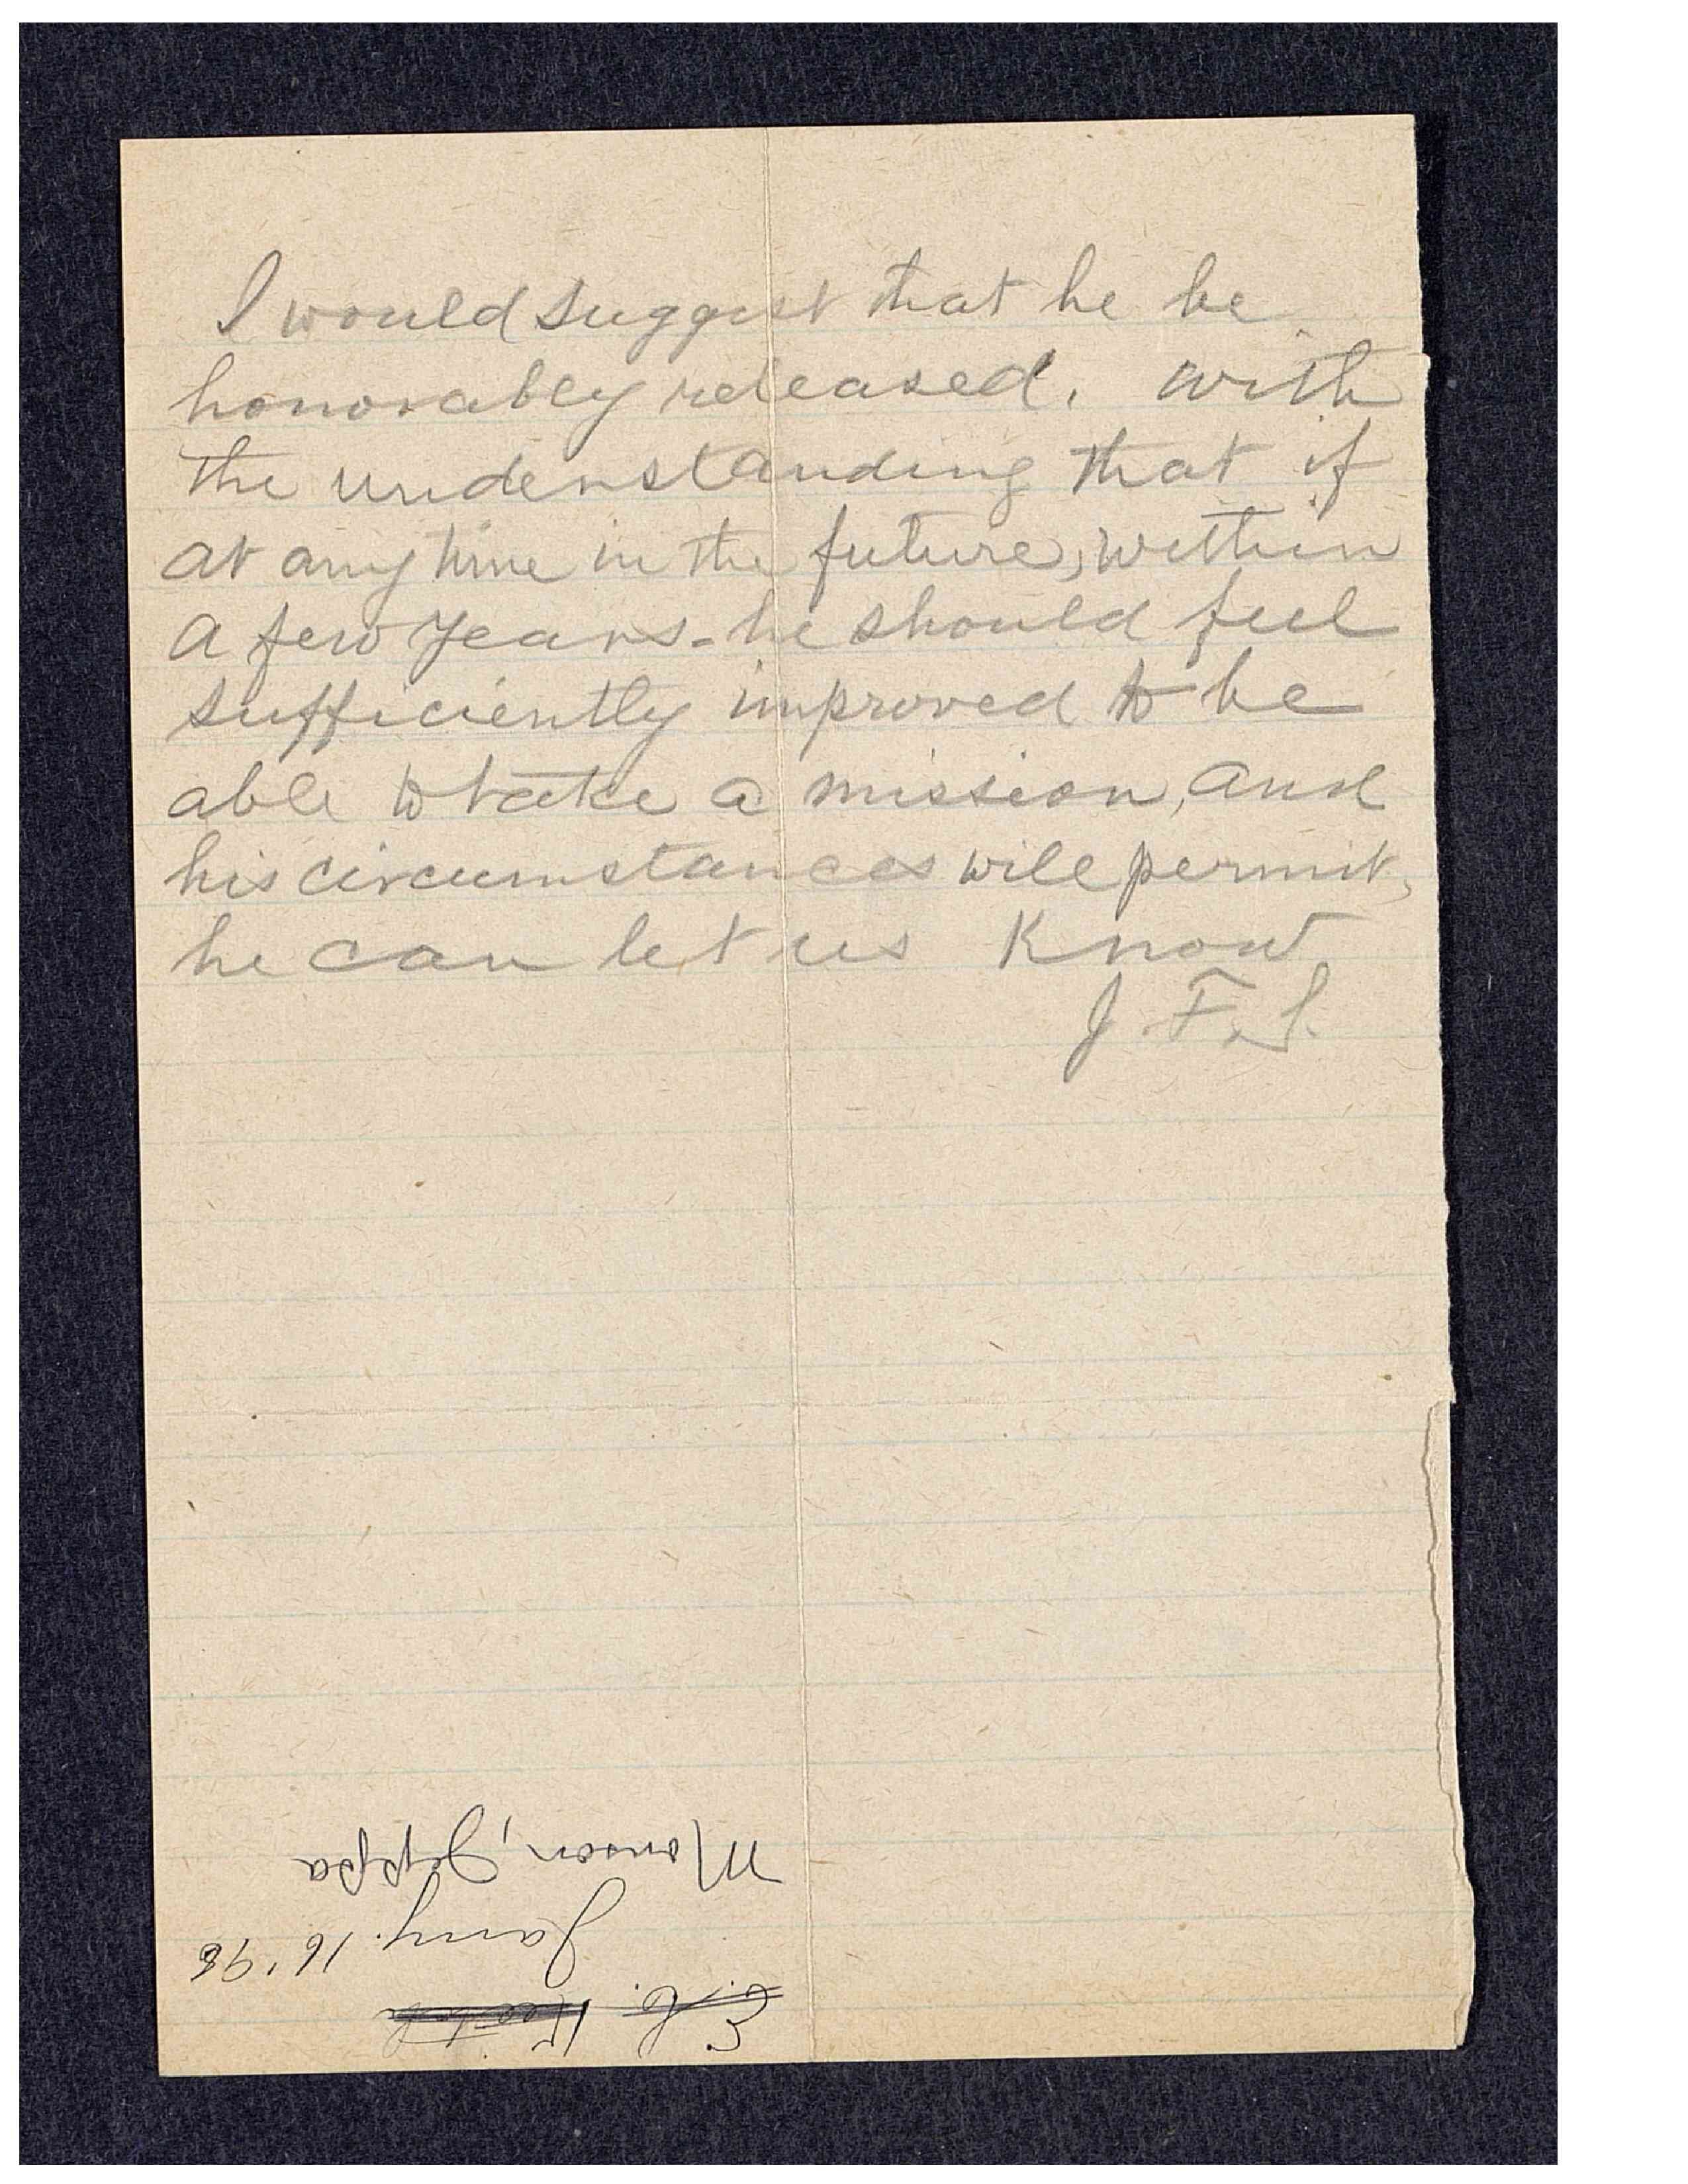 I would suggest that he be
honorably released. with
the understanding that if
at any time in the future, within
a few years - he should feel
sufficiently improved to be
able to take a mission, and
his circumstances will permit,
he can let us know
J. F. S.
E. C.
Jany. 16 '98
Monson, Jeppa